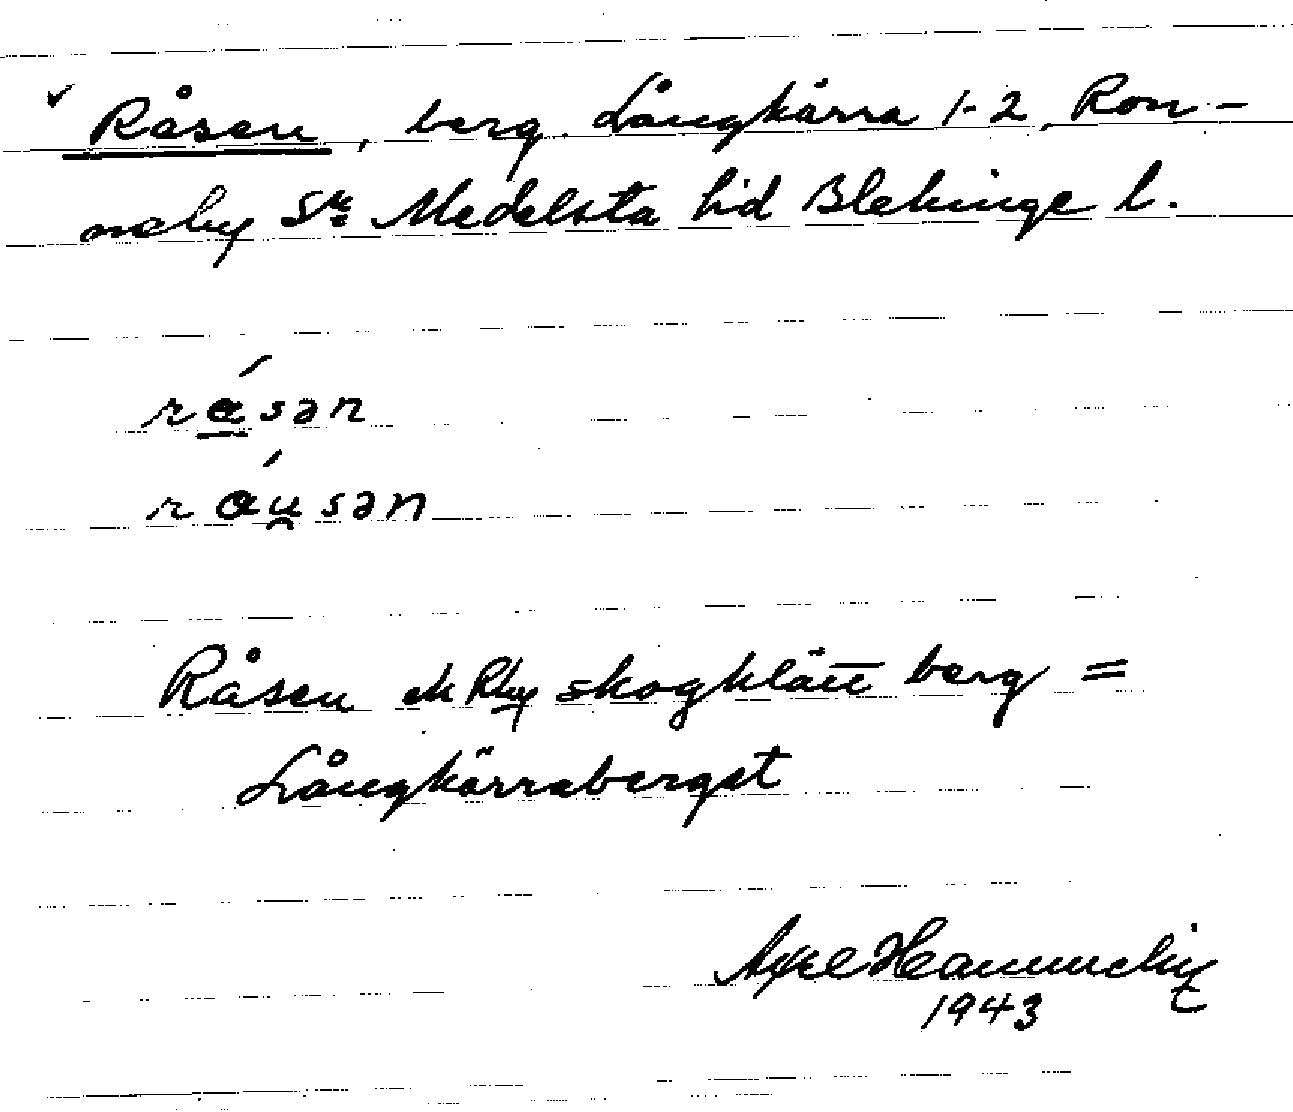 ✓ Råsen, berg. Långkärra 1-2, Ron-
neby Sn Medelsta hd Blekinge l.
rásən
ráu̯sən
Råsen skogklätt berg =
Långkärraberget
Axel
1943